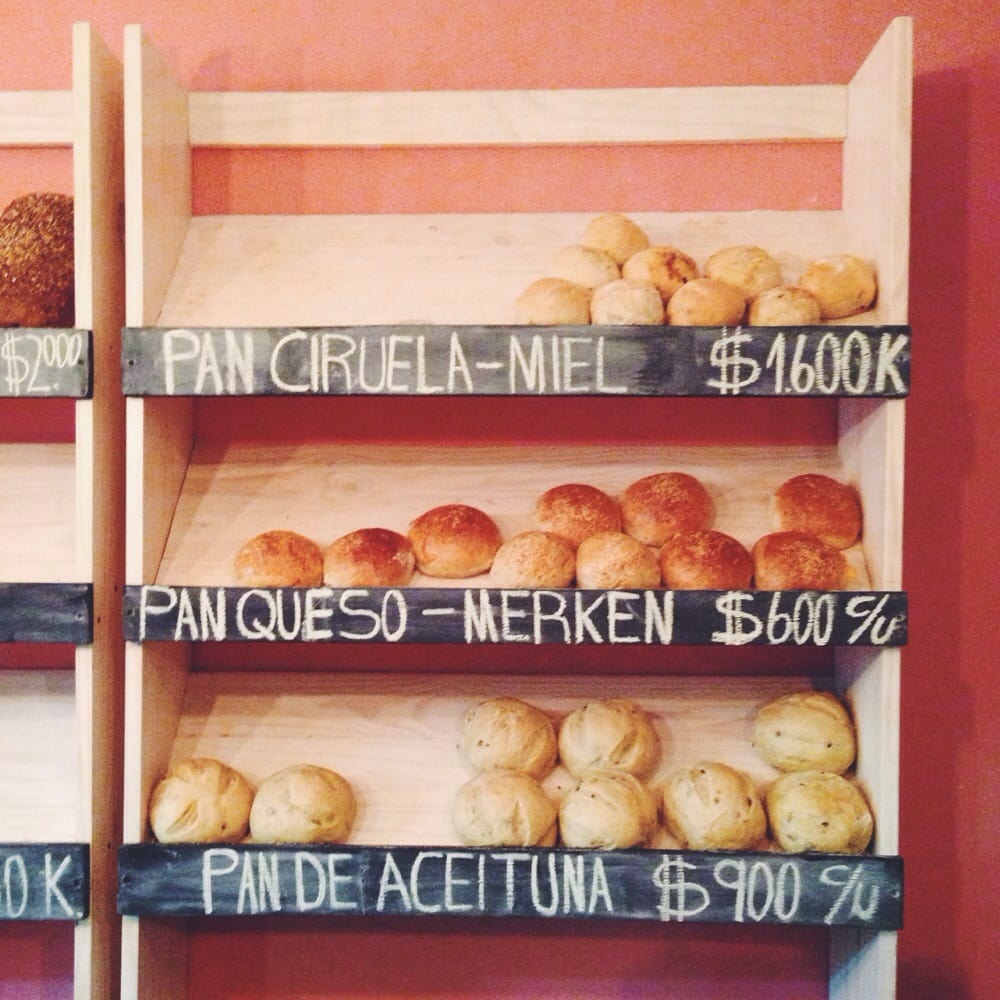 $2.000
PAN CIRUELA-MIEL $1.600K
PAN QUESO - MERKEN $600 c/u
0 K
PAN DE ACEITUNA $900 c/u